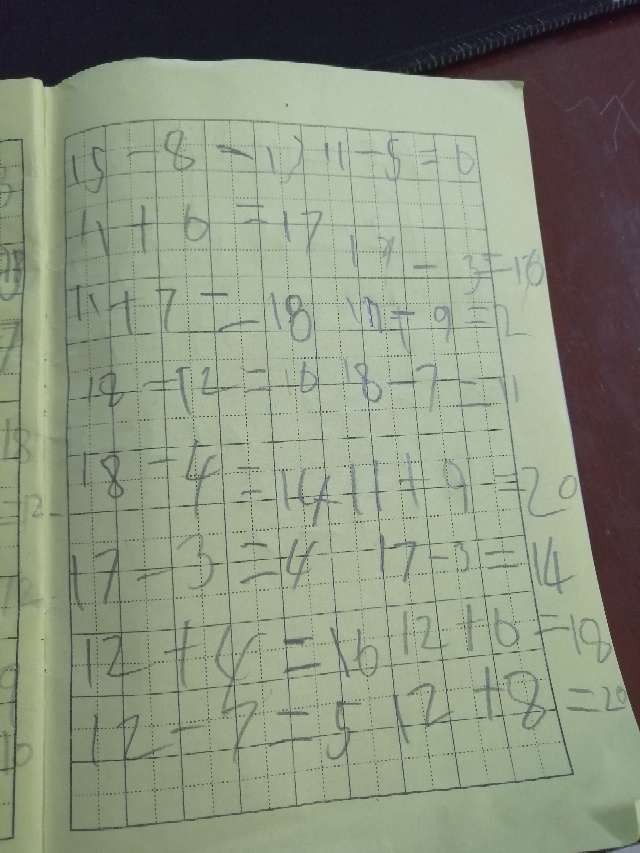 15-8-13 11-5=6
11+6=17
17-3=16
11+7=18 11+9=2
18-12=16 18-7=11
18-4=14 11+9=20
17-3=4 17-3=14
12+4=16 12+6=18
12-7=5 12+8=20